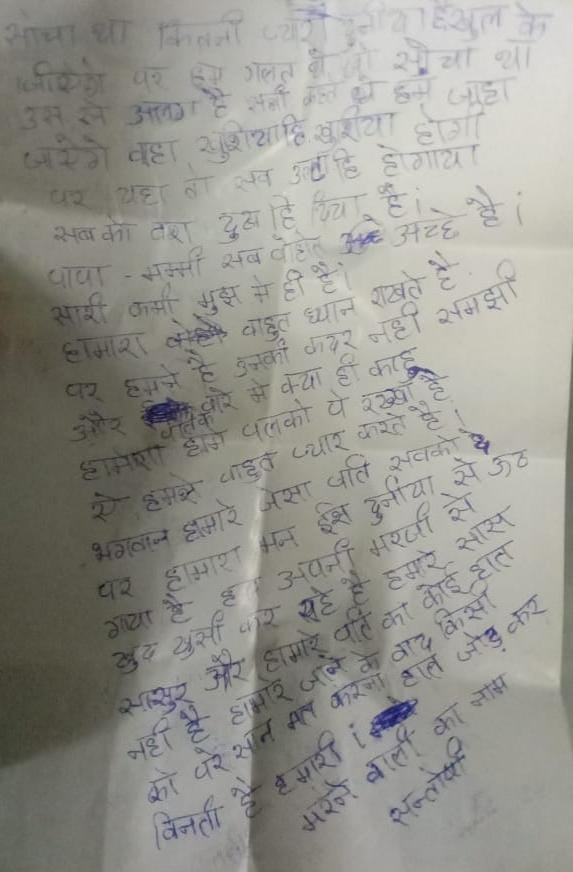 सोचा था कितनी प्यारी दुनीया है खुल के
जीऐंगे पर हम गलत थे जो सोचा था
उस से अलग है सभी कहते थे हम जाहा
जाऐंगे वहा खुशियाहि खुशीया होगी
पर यहा तो सब उल्टा हि होगाया
सब को बस दुख हि दिया है।
पापा - मम्मी सब वोहोत अच्छे है।
सारी कमी मुझ मे ही है।
हामारा वाहुत ध्यान राखते है
पर हमने है उनकी कदर नही समझी
और पति के बारे मे क्या ही काहु
हामेशा हामे पलको पे रखा है
ये हमसे वाहुत प्यार करते है।
भगवान हामारे जैसा पति सबको दे
पर हामारा मन ईस दुनीया से ऊठ
गाया है हाम अपनी मरजी से
खुद खुसी कर रहे है हमारे सास
सासुर और हामारे पति का कोई हात
नही है हामारे जाने के वाद किसी
को परेसान मत करना हात जोड़ कर
विनती है हमारी।
मरने वाली का नाम
सन्तोषी